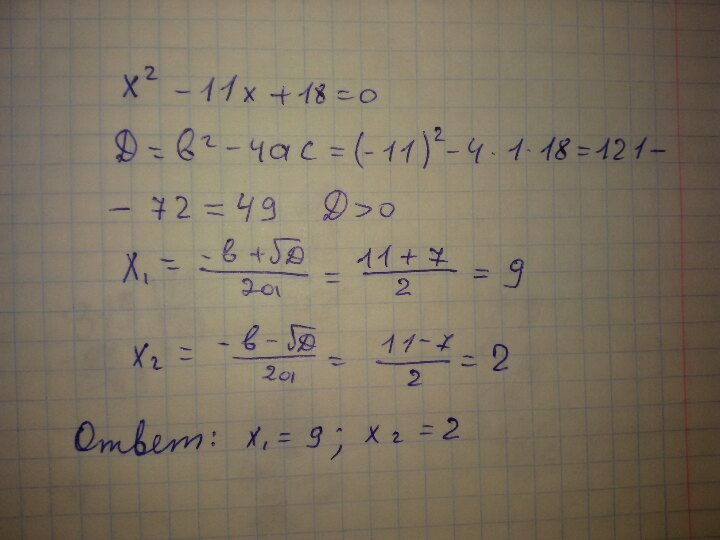 x² - 11x + 18 = 0
D = b² - 4ac = (-11)² - 4 · 1 · 18 = 121 -
- 72 = 49 D > 0
x₁ = (-b + √D)/2a = (11 + 7)/2 = 9
x₂ = (-b - √D)/2a = (11 - 7)/2 = 2
Ответ: x₁ = 9; x₂ = 2